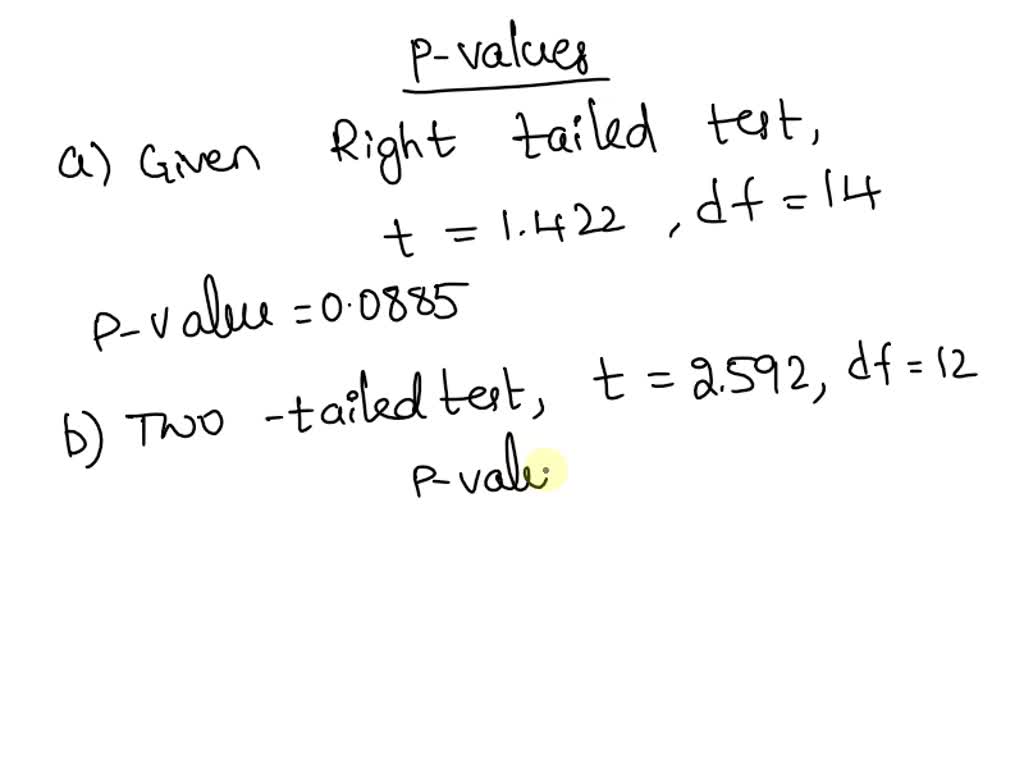 P-values
a) Given Right tailed test,
t = 1.422, df = 14
P-value = 0.0885
b) Two-tailed test, t = 2.592, df = 12
P-valu